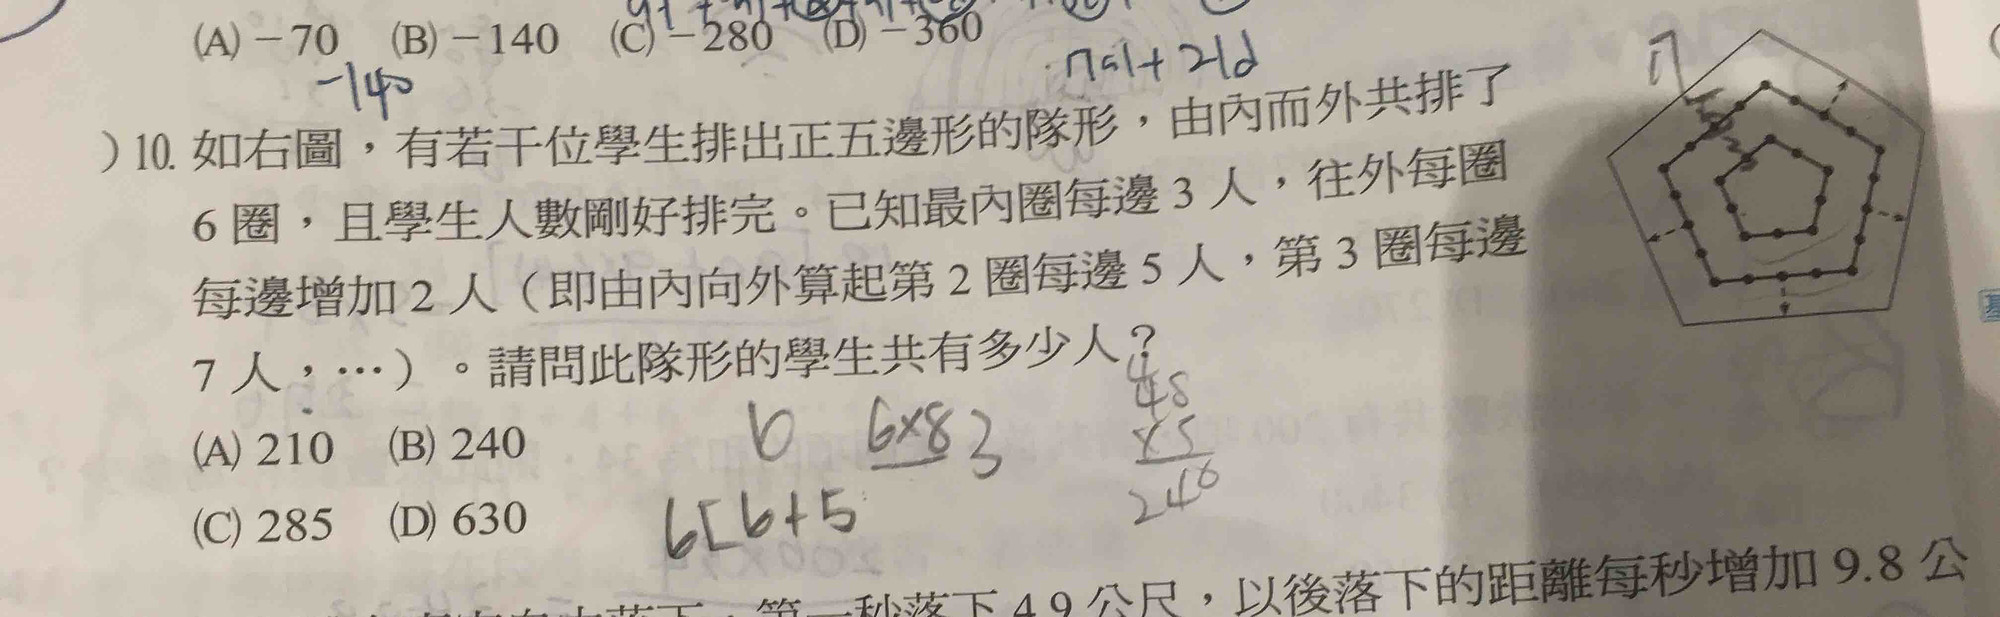 (A) −70 (B) −140 (C) −280 (D) −360
-140
)10. 如右圖，有若干位學生排出正五邊形的隊形，由內而外共排了
6 圈，且學生人數剛好排完。已知最內圈每邊 3 人，往外每圈
每邊增加 2 人（即由內向外算起第 2 圈每邊 5 人，第 3 圈每邊
7 人，…）。請問此隊形的學生共有多少人？
(A) 210 (B) 240
(C) 285 (D) 630
6 6×8 3
6[6+5
48
×5
240
第一秒落下 4.9 公尺，以後落下的距離每秒增加 9.8 公